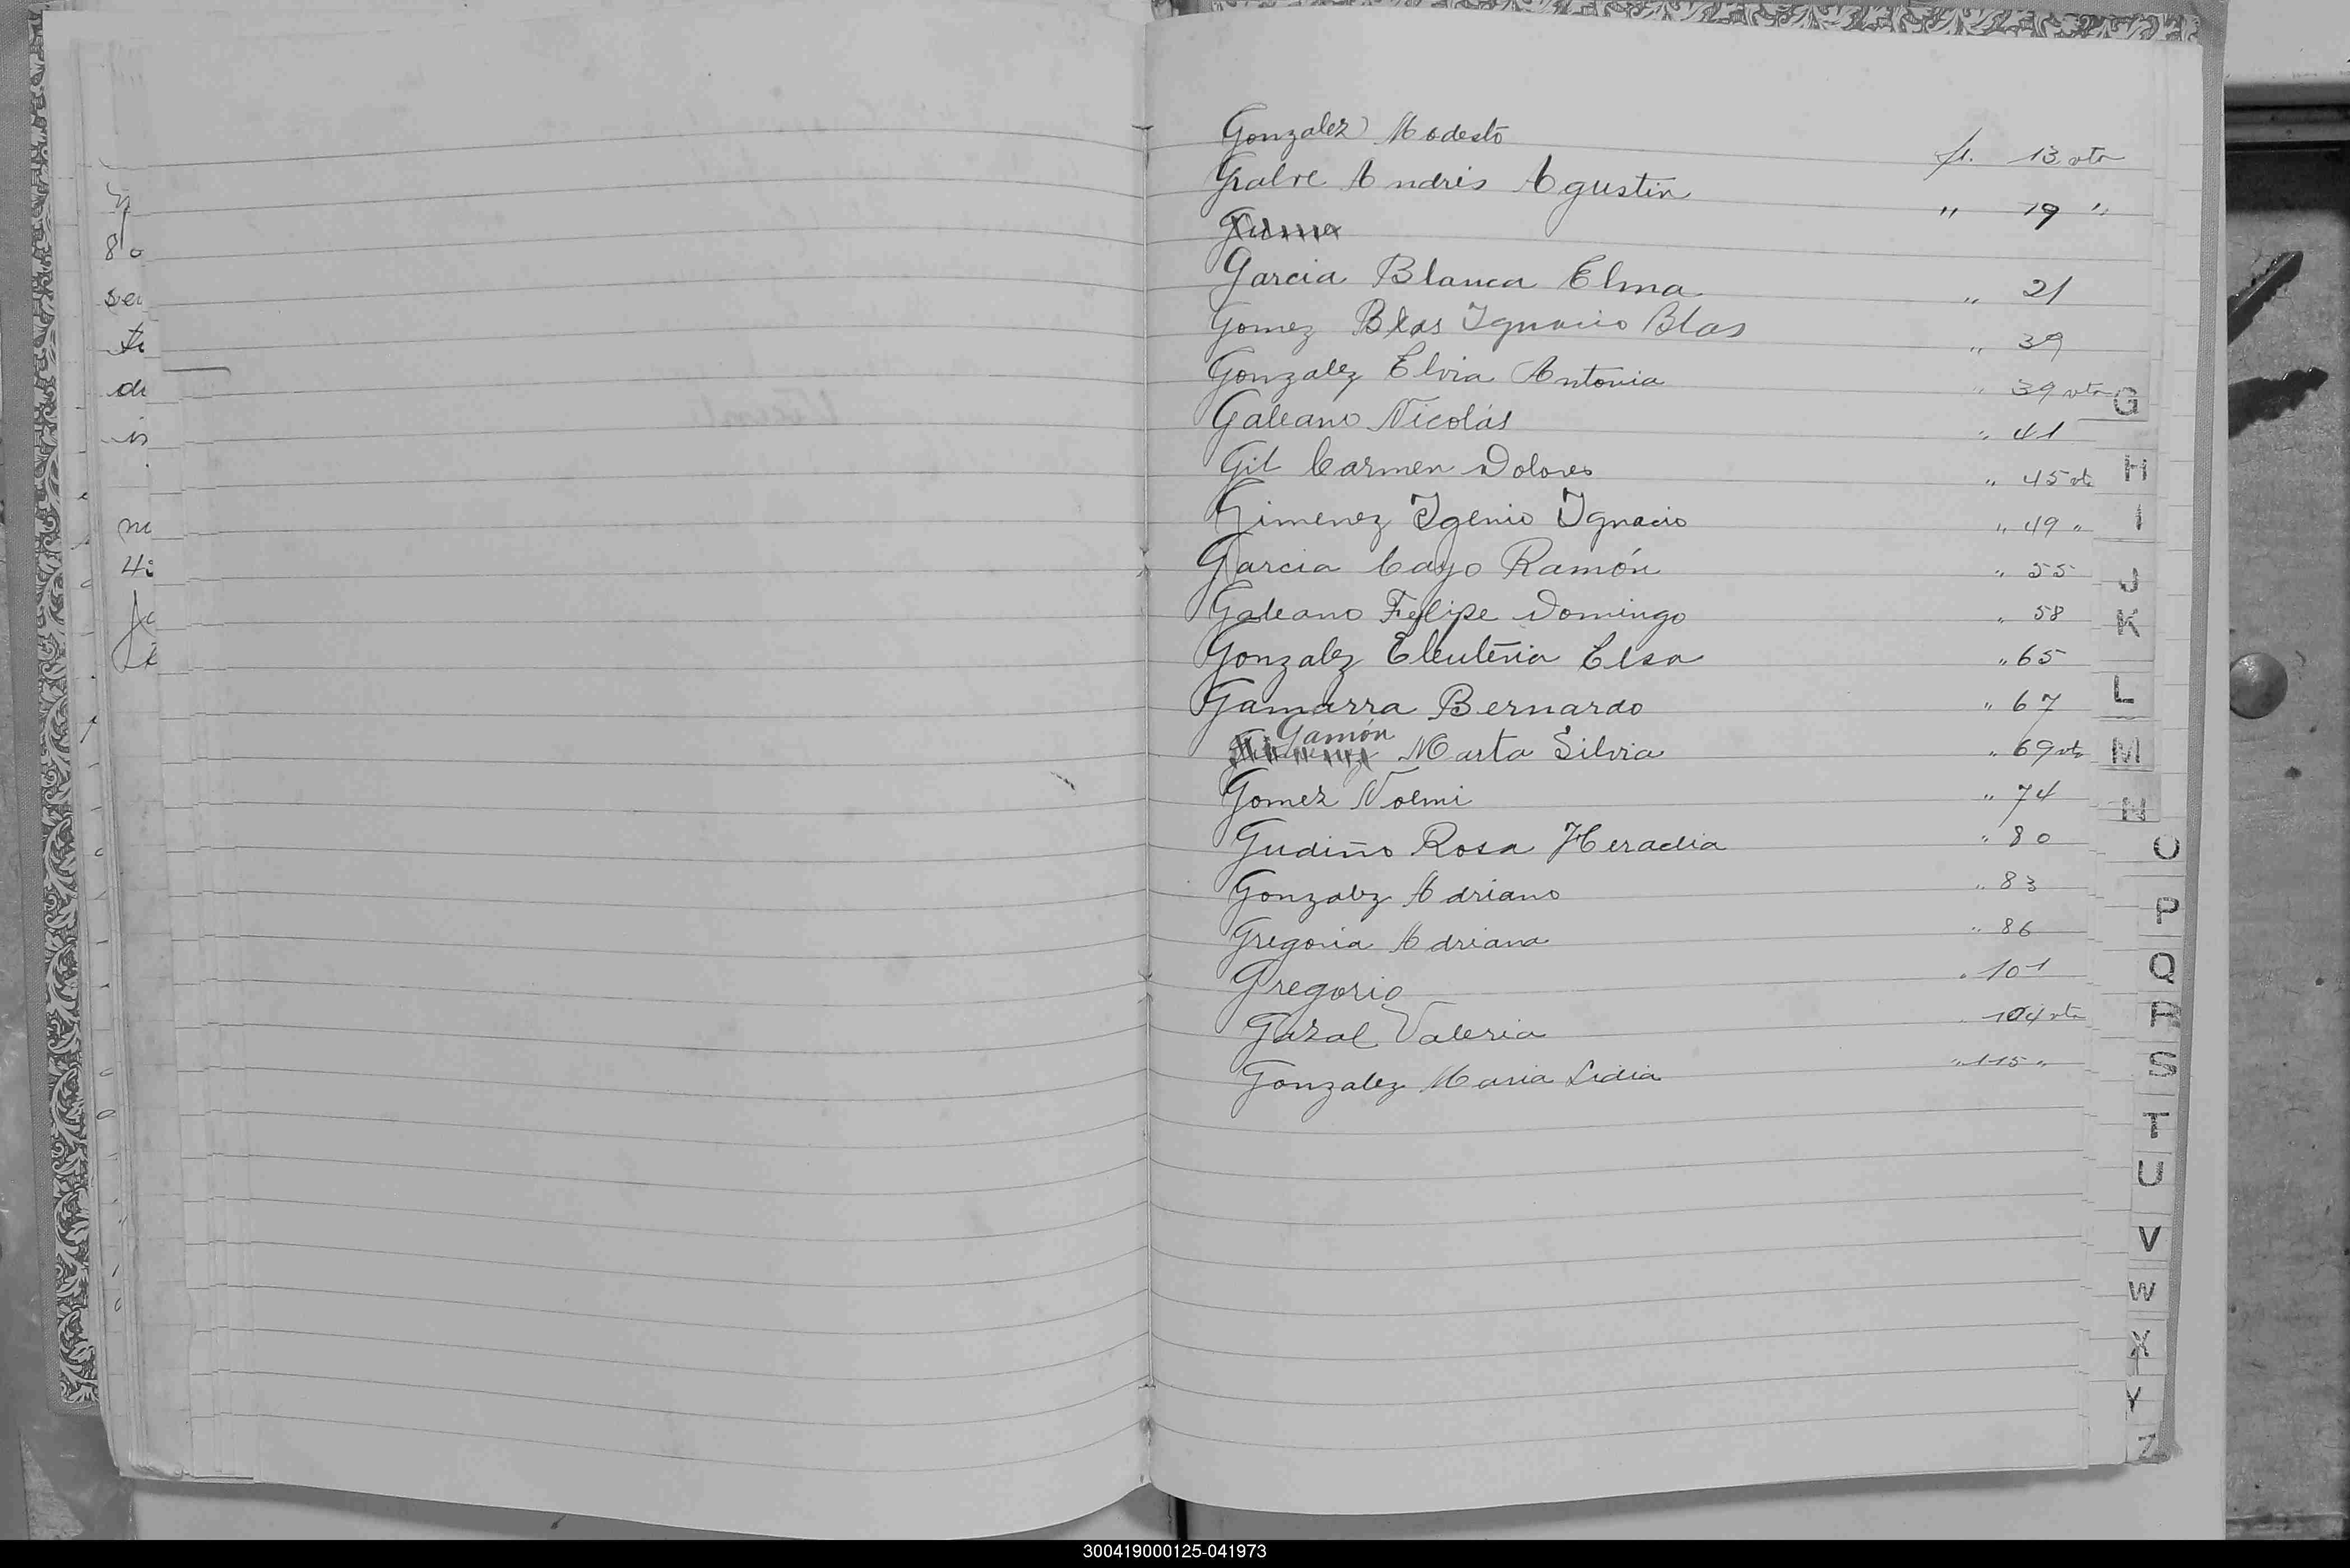 Gonzalez Modesto fl. 13 vta
Galve Andrés Agustin " 19 "
Garcia Blanca Elma " 21
Gomez Blas Ignacio Blas " 39
Gonzalez Elvia Antonia " 39 vta
Galeano Nicolás " 41
Gil Carmen Dolores " 45 vta
Gimenez Igenio Ignacio " 49 "
Garcia Cayo Ramón " 55
Galeano Felipe Domingo " 58
Gonzalez Eleuteria Elsa " 65
Gamarra Bernardo " 67
Gamón
Marta Silvia " 69 vta
Gomez Noemi " 74
Gudiño Rosa Heraclia " 80
Gonzalez Adriano " 83
Gregoria Adriana " 86
Gregorio " 101
Gazal Valeria " 104 vta
Gonzalez Maria Lidia " 115 "
G
H
I
J
K
L
M
N
O
P
Q
R
S
T
U
V
W
X
Y
Z
300419000125-041973